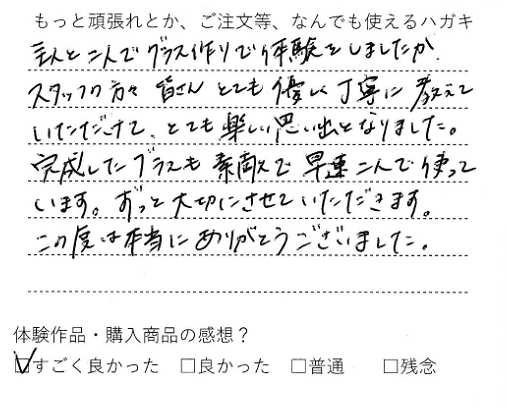 もっと頑張れとか、ご注文等、なんでも使えるハガキ
主人と二人でグラス作りで体験をしましたが、
スタッフの方々 皆さん とても 優しく 丁寧に 教えて
いただけて、とても楽しい思い出となりました。
完成したグラスも 素敵で 早速 二人で使って
います。ずっと大切にさせていただきます。
この度は本当にありがとうございました。
体験作品・購入商品の感想？
☑すごく良かった □良かった □普通 □残念